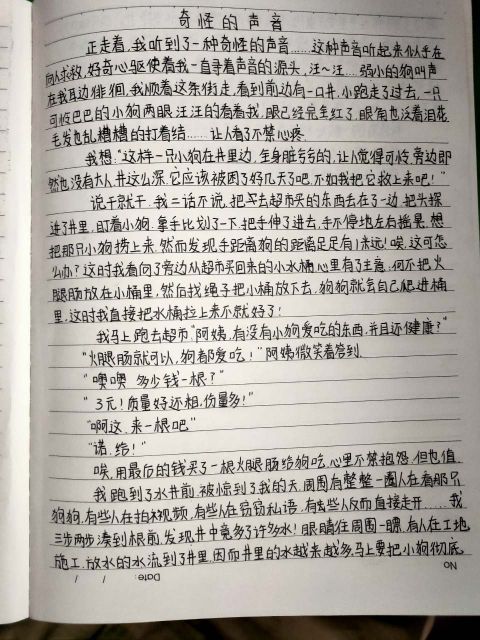 奇怪的声音
正走着,我听到了一种奇怪的声音……这种声音听起来似乎在
向人求救,好奇心驱使着我一直寻着声音的源头,汪~汪…弱小的狗叫声
在我耳边徘徊,我顺着这条街走,看到前边有一口井,小跑走了过去,一只
可怜巴巴的小狗两眼汪汪的看着我,眼已经完全红了,眼角也泛着泪花
毛发也乱糟糟的打着结……让人看了不禁心疼。
我想:“这样一只小狗在井里边,全身脏兮兮的,让人觉得可怜,旁边即
然也没有大人,井这么深,它应该被困了好几天了吧,不如我把它救上来吧!”
说干就干,我二话不说,把买去超市买的东西去在了一边,把头探
进了井里,盯着小狗,拿手比划了一下,把手伸了进去,手不停地左右摇晃,想
把那只小狗捞上来,然而发现手距离狗的距离足足有1米远!唉,这可怎
么办?这时我看向了旁边从超市买回来的小水桶,心里有了主意:何不把火
腿肠放在小桶里,然后找绳子把小桶放下去,狗狗就会自己爬进桶
里,这时我直接把水桶拉上来不就好了!
我马上跑去超市“阿姨,有没有小狗爱吃的东西,并且还健康?”
“火腿肠就可以,狗都爱吃!”阿姨微笑着答到.
“噢噢 多少钱一根?”
“3元!质量好还相,份量多!”
“啊这,来一根吧”
“诺,给!”
唉,用最后的钱买了一根火腿肠给狗吃,心里不禁抱怨,但也值
我跑到了水井前,被惊到了我的天,周围有整整一圈人在看那只
狗狗,有些人在拍视频,有些人在窃窃私语,有些人反而直接走开……我
三步两步凑到跟前,发现井中竟多了许多水!眼睛往周围一瞟,有人在工地
施工,放水的水流到了井里,因而井里的水越来越多,马上要把小狗彻底
No
Date: / /